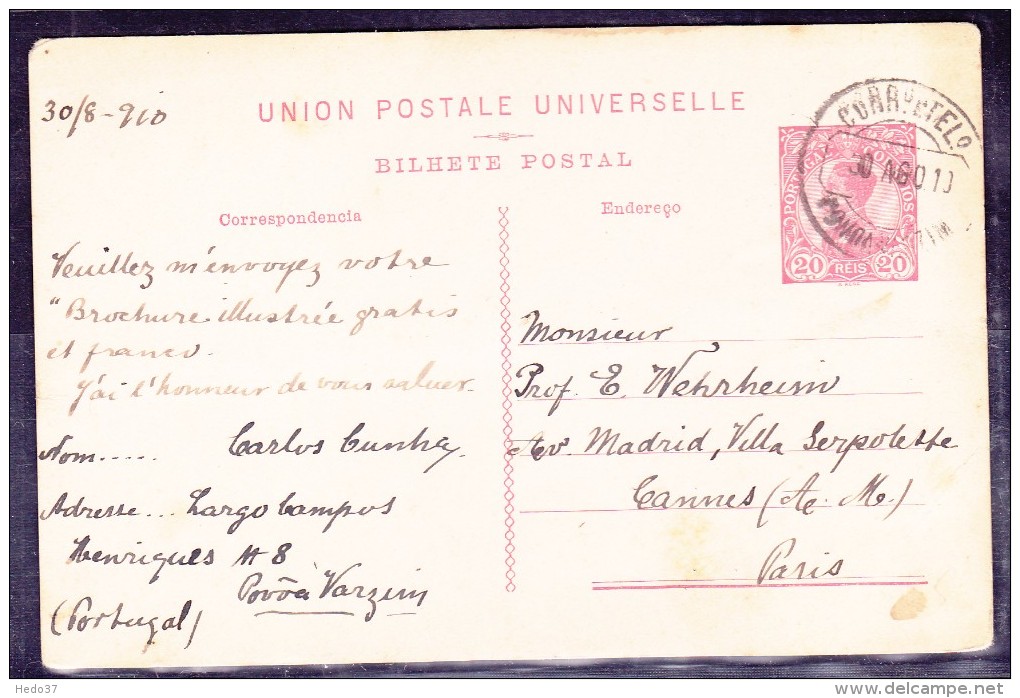 30/8-910
UNION POSTALE UNIVERSELLE
BILHETE POSTAL
Correspondencia
Endereço
CORR.º E TEL.º
30 AGO 10
PORTUGAL
20 RÉIS 20
Veuillez m'envoyez votre
"Brochure illustrée gratis
et franco.
J'ai l'honneur de vous saluer.
Nom..... Carlos Cunha.
Adresse... Largo Campos
Henriques # 8
Povôa Varzim
(Portugal)
Monsieur
Prof. E. Wehrheim
Av. Madrid, Villa Serpolette
Cannes (A. M.)
Paris
Hedo37
http://www.delcampe.net